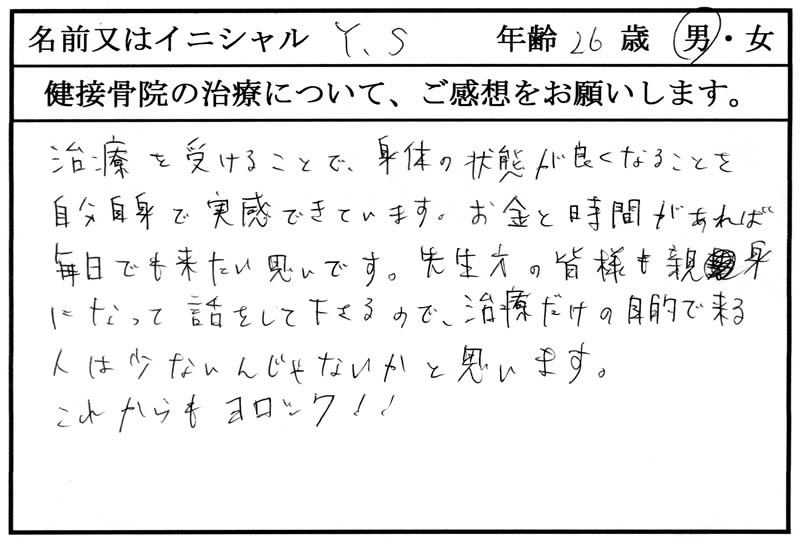 名前又はイニシャル Y.S 年齢 26 歳 男・女
健接骨院の治療について、ご感想をお願いします。
治療を受けることで、身体の状態が良くなることを
自分自身で実感できています。お金と時間があれば
毎日でも来たい思いです。先生方の皆様も親身
になって話をして下さるので、治療だけの目的で来る
人は少ないんじゃないかと思います。
これからもヨロシク!!